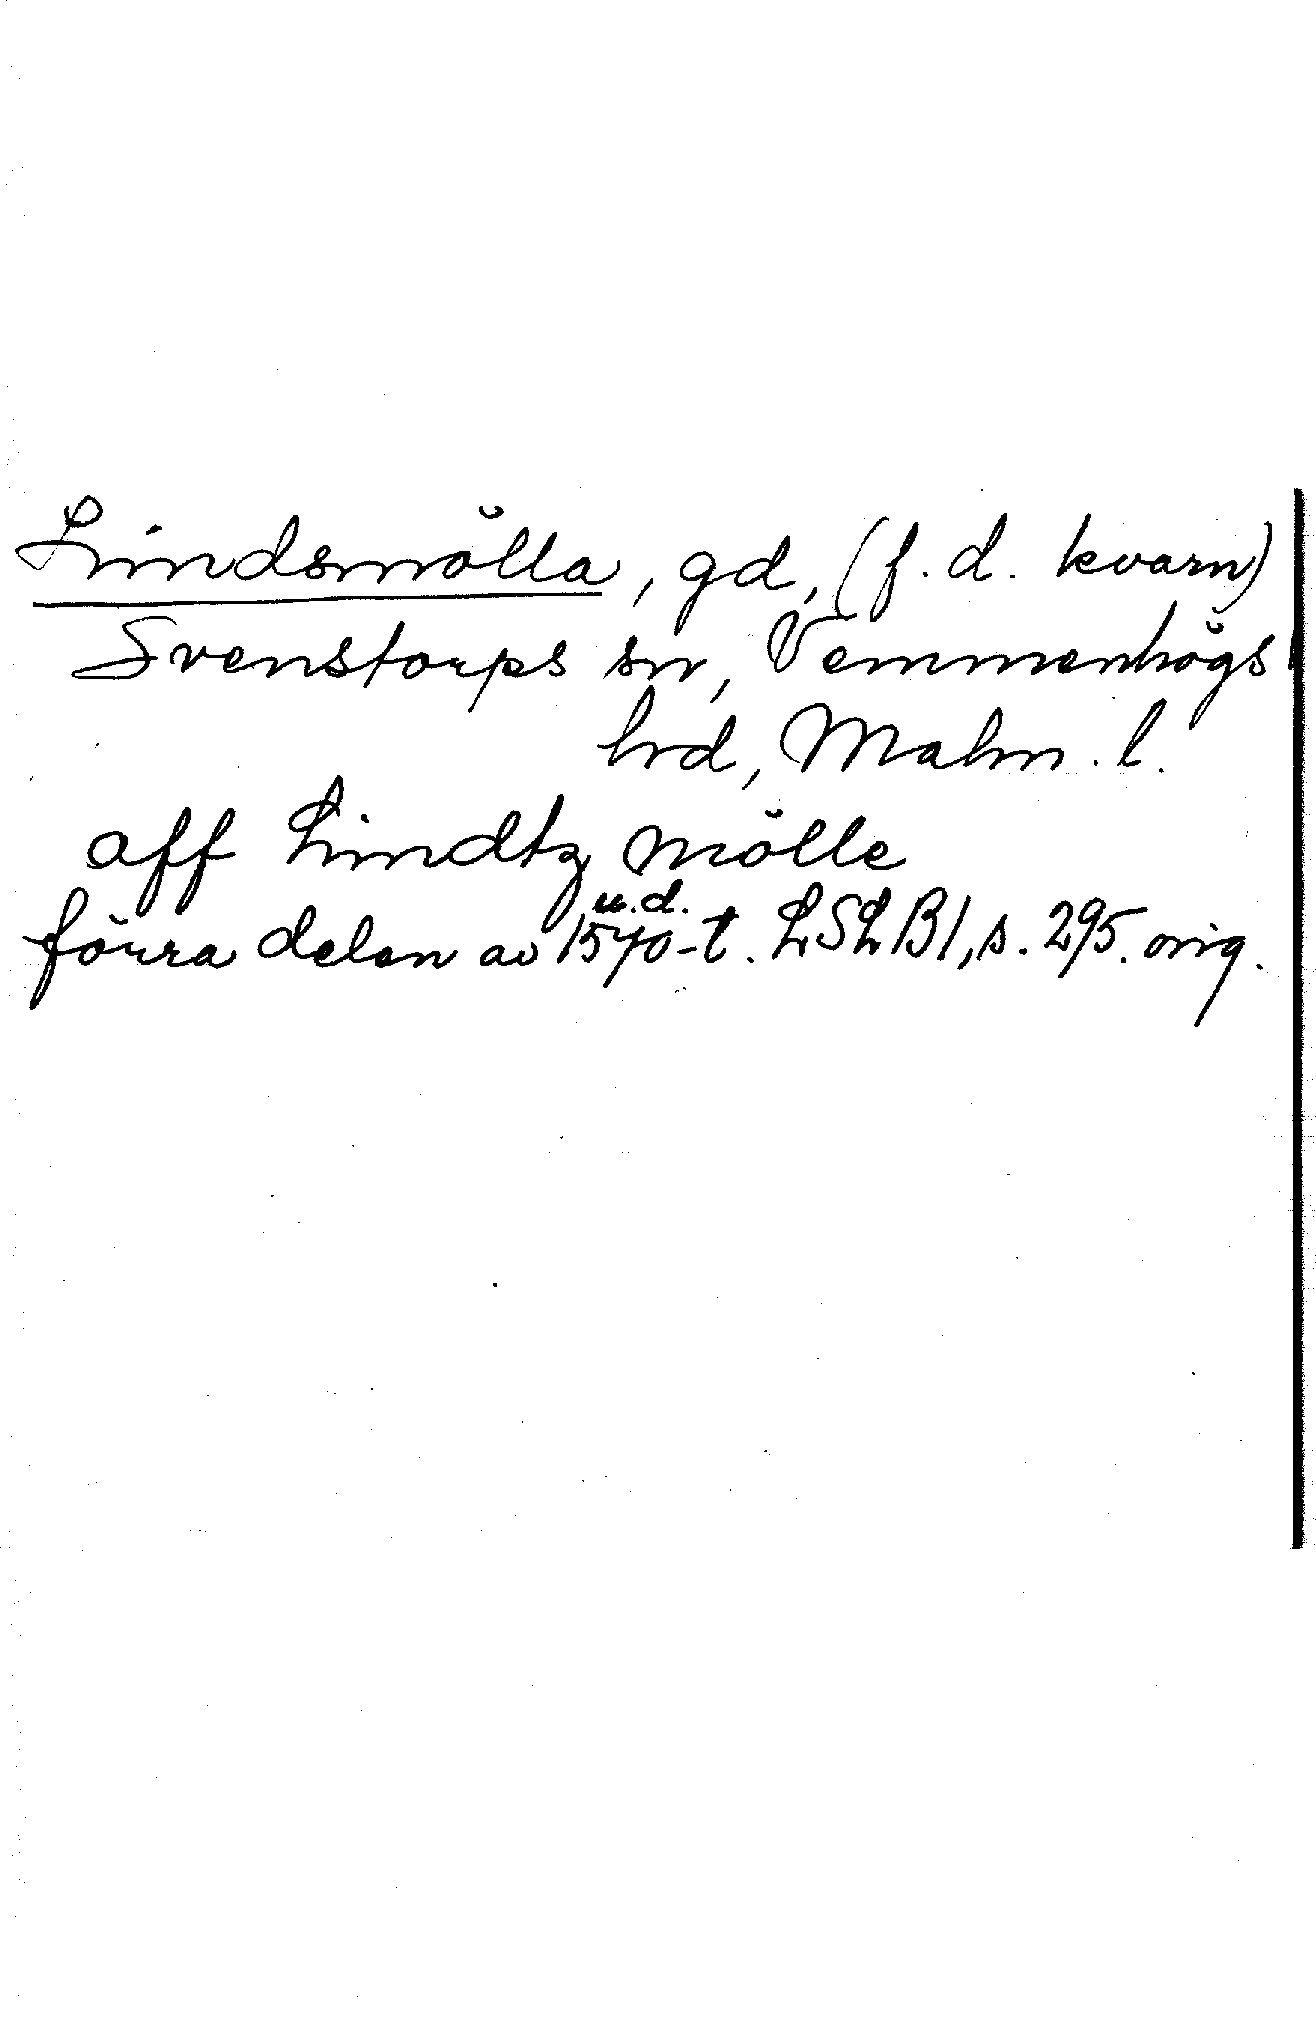 Lindsmölla, gd, (f. d. kvarn)
Svenstorps sn, Vemmenhögs
hrd, Malm. l.
aff Lindtz mölle
u.d.
förra delen av 1570-t. LSLB1, s. 295. orig.